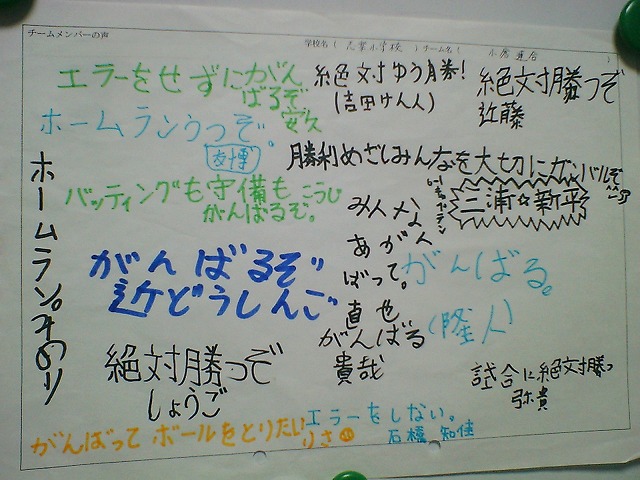 チームメンバーの声
学校名( 小学校 )チーム名( 小倉連合 )
エラーをせずにがん
ばるぞ
安久
絶対ゆう勝!
(吉田けんん)
絶対勝つぞ
近藤
ホームランうつぞ。
友博
勝利めざしみんなを大切にガンバルぞ
バッティングも守備も こうじ
がんばるぞ。
三浦☆新平
みんな
あがん
ばって。
直也
ホームラン。みのり
がんばるぞ
近どうしんご
がんばる。
(隆人)
がんばる
貴哉
絶対勝つぞ
しょうご
試合に絶対勝つ
弥貴
がんばって ボールをとりたい
りさ
エラーをしない。
石橋 知佳